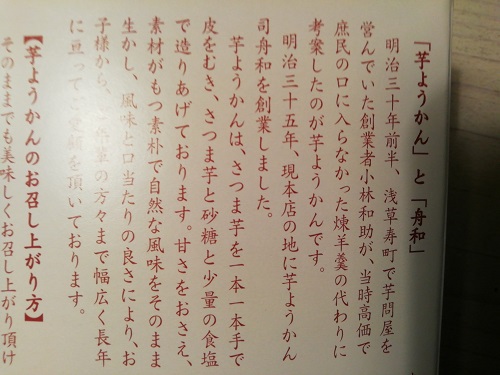 「芋ようかん」と「舟和」
明治三十年前半、浅草寿町で芋問屋を
営んでいた創業者小林和助が、当時高価で
庶民の口に入らなかった煉羊羹の代わりに
考案したのが芋ようかんです。
明治三十五年、現本店の地に芋ようかん
司舟和を創業しました。
芋ようかんは、さつま芋を一本一本手で
皮をむき、さつま芋と砂糖と少量の食塩
で造りあげております。甘さをおさえ、
素材がもつ素朴で自然な風味をそのまま
生かし、風味と口当たりの良さにより、お
子様から、年輩の方々まで幅広く長年
に亘ってご愛顧を頂いております。
【芋ようかんのお召し上がり方】
そのままでも美味しくお召し上がり頂け